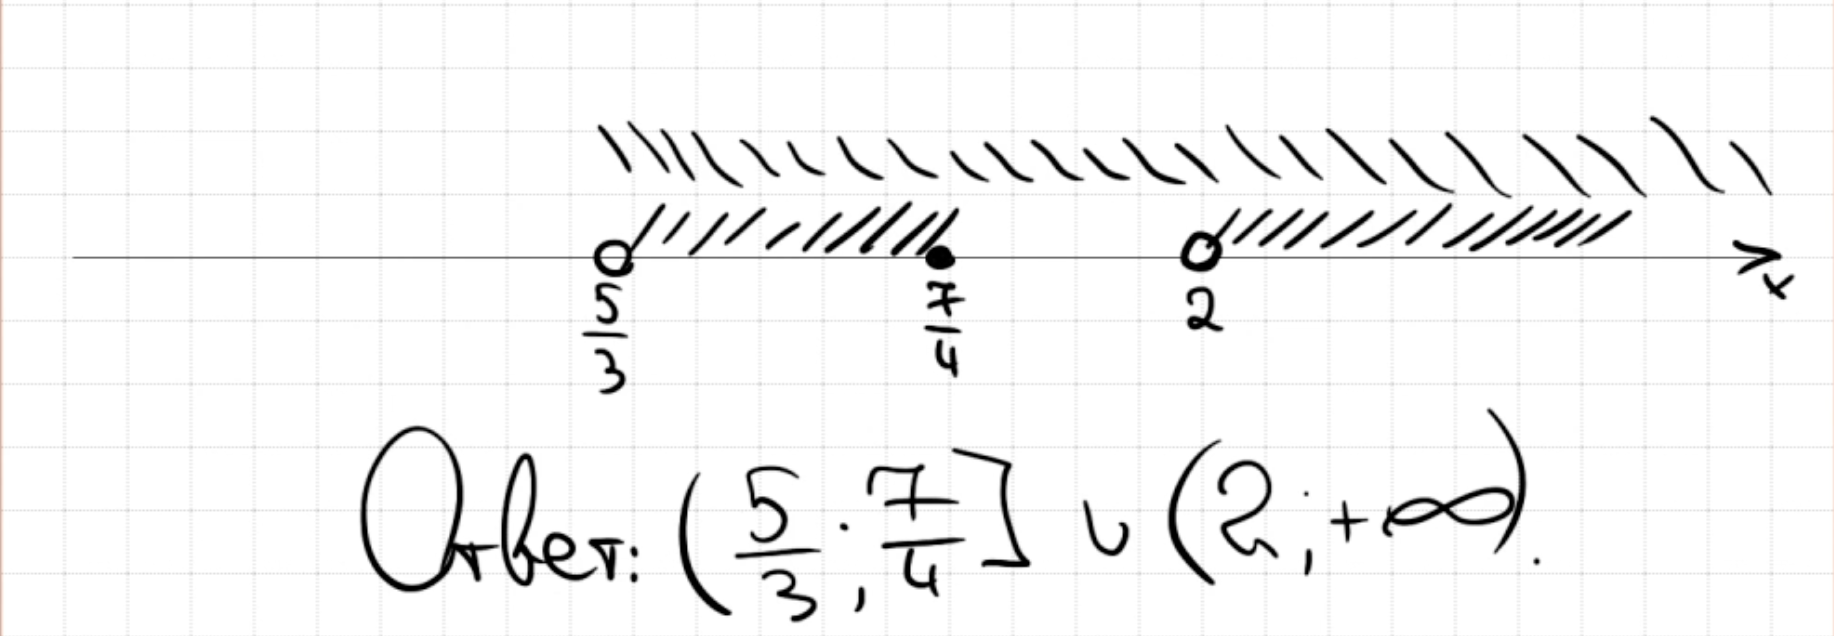 5/3 7/4 2 x
Ответ: (5/3; 7/4] ∪ (2; +∞).